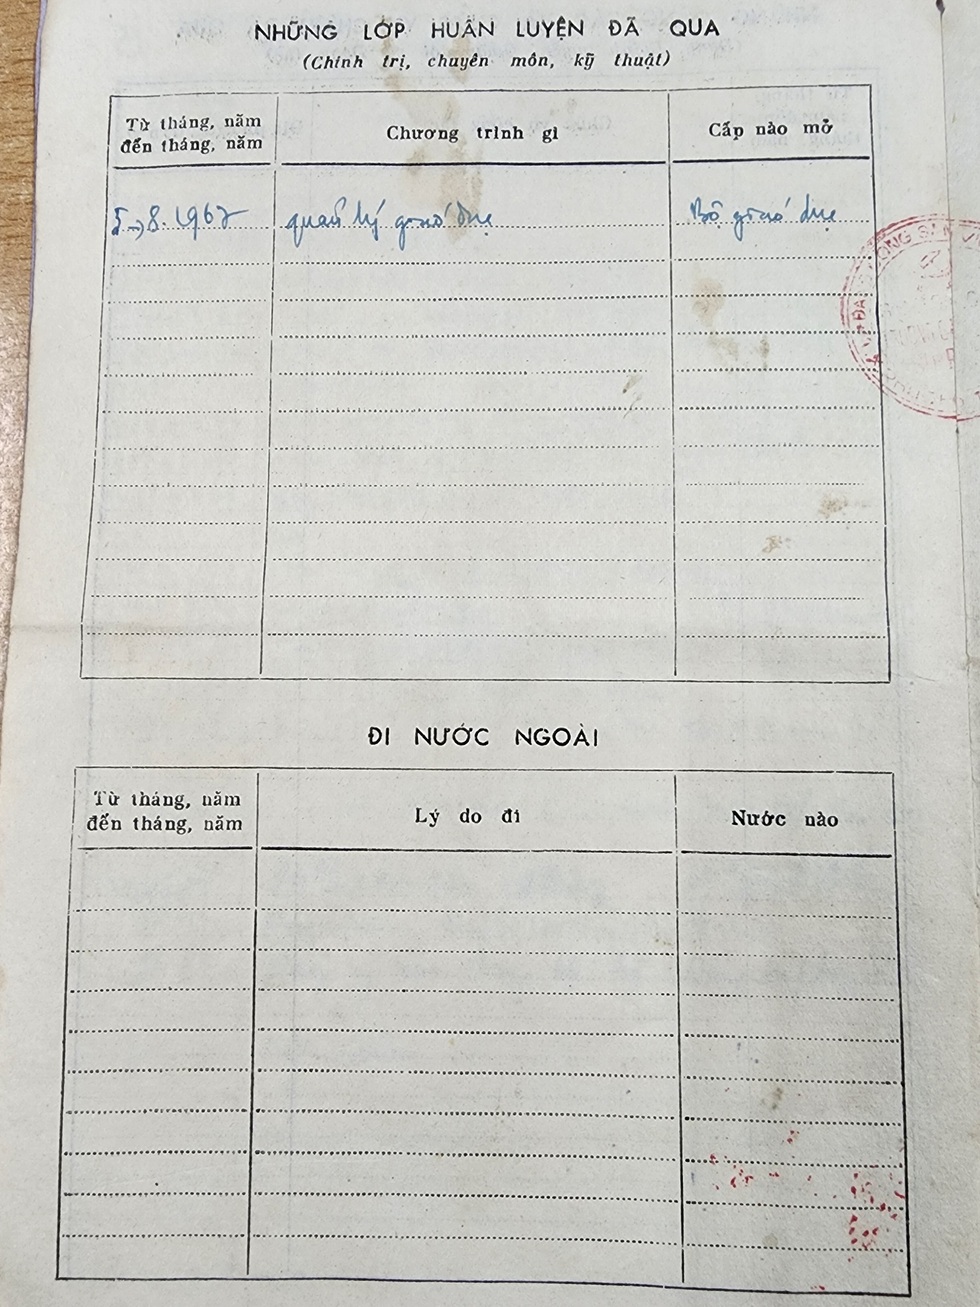 NHỮNG LỚP HUẤN LUYỆN ĐÃ QUA
(Chính trị, chuyên môn, kỹ thuật)
Từ tháng, năm
đến tháng, năm
Chương trình gì
Cấp nào mở
5→8.1967 quản lý giáo dục Bộ giáo dục
ĐI NƯỚC NGOÀI
Từ tháng, năm
đến tháng, năm
Lý do đi
Nước nào